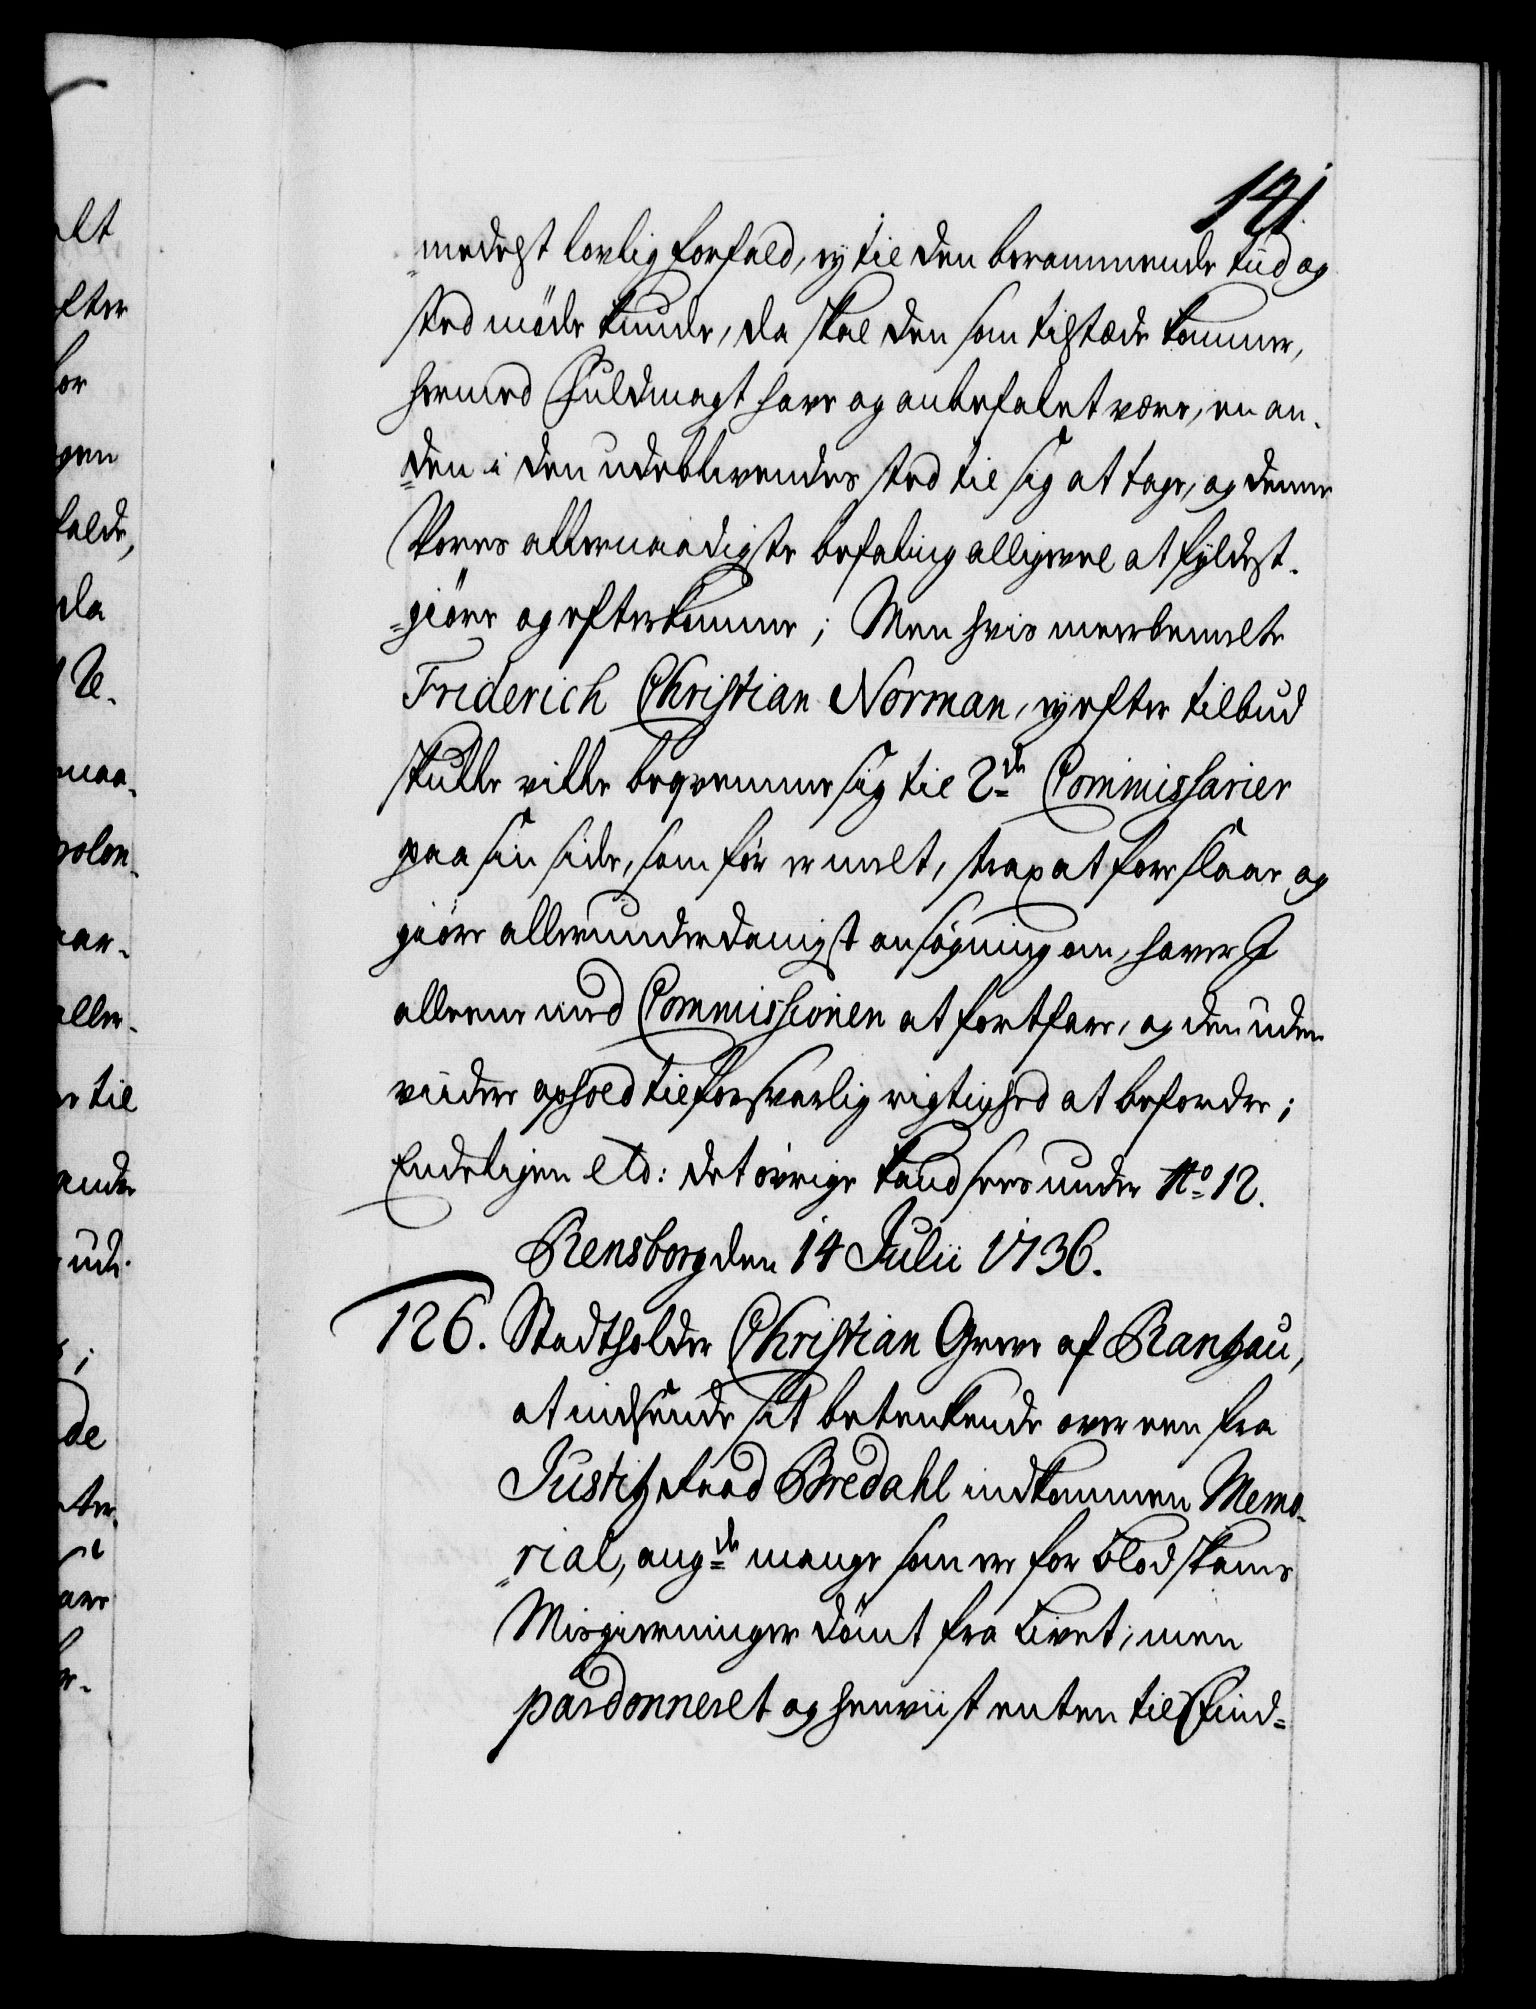 141.
"medelst lovlig forfald, ey til den berammende tiid og
sted møde kunde, da skal den som tilstæde kommer,
hermed Fuldmagt have og anbefalet være, en an-
"den i den udeblivendes sted til sig at tage, og denne
Vores allernaadigste befaling alligevel at fyldest-
"giøre og efterkomme; Men hvis meerbemelte
Friderich Christian Norman, ey efter tilbud
skulle ville beqvemme sig til 2de Commissarier
paa sin side, som før er melt, strax at foreslaae og
giøre allerunderdanigst ansøgning om, haver I
alleene med Commissionen at fortfare, og den uden
viidere ophold til forsvarlig rigtighed at befordre;
Endeligen etc: det øvrige kand sees under No 12.
Rensborg den 14 Julii 1736.
126. Stadtholder Christian Greve af Rantzau,
at indsende sit betenkende over een fra
Justitzraad Bredahl indkommen Memo-
"rial, angde mange som ere for blodskams
Misgierninger dömt fra Livet, men
pardonneret og henviist enten til Find=
alt
efter
for
gen
falde,
da
naa-
aller-
til
ande
ud-
de